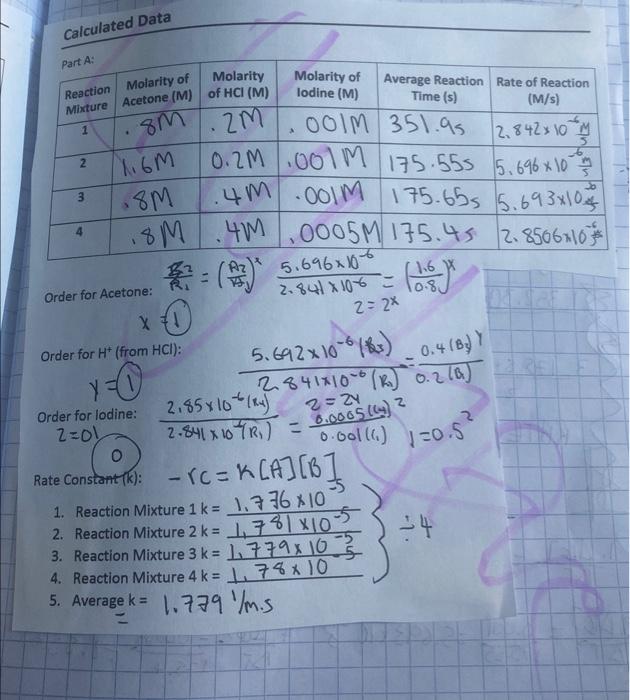 Calculated Data
Part A:
Reaction Mixture | Molarity of Acetone (M) | Molarity of HCl (M) | Molarity of Iodine (M) | Average Reaction Time (s) | Rate of Reaction (M/s)
1 | .8M | .2M | .001M | 351.9s | 2.842x10⁻⁶ M/s
2 | 1.6M | 0.2M | .001M | 175.55s | 5.696x10⁻⁶ M/s
3 | .8M | .4M | .001M | 175.65s | 5.693x10⁻⁶
4 | .8M | .4M | .0005M | 175.4s | 2.8506x10⁻⁶
Order for Acetone: R2/R1 = (A2/A1)ˣ 5.696x10⁻⁶/2.841x10⁻⁶ = (1.6/0.8)ˣ
2=2ˣ
x=1
Order for H⁺ (from HCl): 5.692x10⁻⁶(R3)/2.841x10⁻⁶(R1) = 0.4(B3)/0.2(B1) ʸ
y=1 2=2y
Order for Iodine: 2.85x10⁻⁶(R4)/2.841x10⁻⁶(R1) = 0.0005(C4)/0.001(C1) ᶻ 1=0.5ᶻ
0
Rate Constant (k): -rc = K[A][B]
1. Reaction Mixture 1 k = 1.776x10⁻⁵
2. Reaction Mixture 2 k = 1.781x10⁻⁵
3. Reaction Mixture 3 k = 1.779x10⁻⁵ ÷4
4. Reaction Mixture 4 k = 1.78x10⁻⁵
5. Average k = 1.779 1/m.s